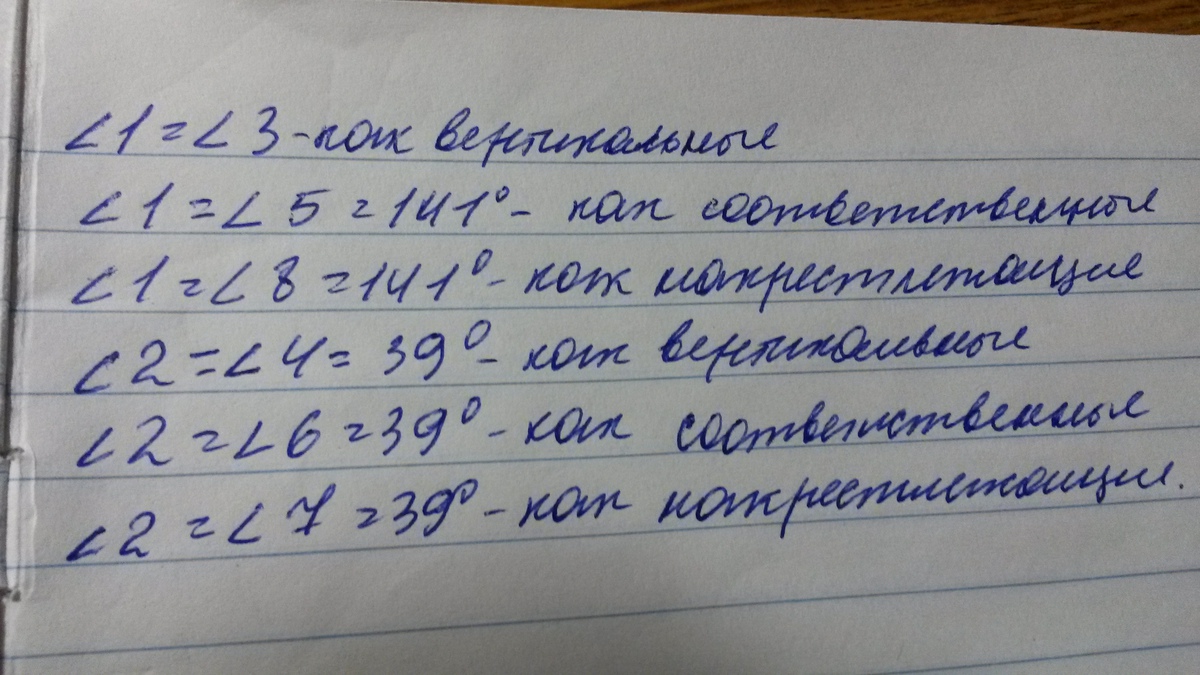 ∠1 = ∠3 - как вертикальные
∠1 = ∠5 = 141° - как соответственные
∠1 = ∠8 = 141° - как накрестлежащие
∠2 = ∠4 = 39° - как вертикальные
∠2 = ∠6 = 39° - как соответственные
∠2 = ∠7 = 39° - как накрестлежащие.